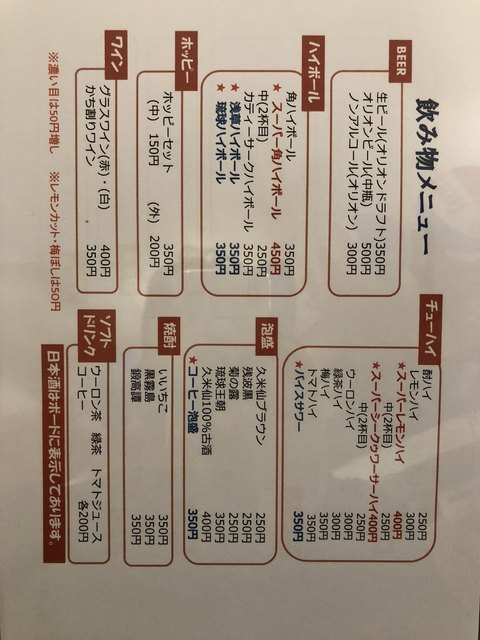 飲み物メニュー
BEER
生ビール(オリオンドラフト)350円
オリオンビール(中瓶) 500円
ノンアルコール(オリオン) 300円
ハイボール
角ハイボール 350円
★スーパー角ハイボール 450円
中(2杯目) 250円
カティーサークハイボール 350円
★浅草ハイボール 350円
★琉球ハイボール 350円
ホッピー
ホッピーセット 350円
(中) 150円 (外) 200円
ワイン
グラスワイン(赤)・(白) 400円
かち割りワイン 350円
※濃い目は50円増し ※レモンカット・梅ぼしは50円
チューハイ
酎ハイ 250円
レモンハイ 300円
★スーパーレモンハイ 400円
中(2杯目) 250円
★スーパーシークヮーサーハイ400円
中(2杯目) 250円
ウーロンハイ 300円
緑茶ハイ 350円
梅ハイ 350円
トマトハイ 350円
★バイスサワー 350円
泡盛
久米仙ブラウン 250円
残波黒 250円
菊の露 250円
琉球王朝 350円
久米仙100%古酒 400円
★コーヒー泡盛 350円
焼酎
いいちこ 350円
黒霧島 350円
鍛高譚 350円
ソフトドリンク
ウーロン茶 緑茶 トマトジュース
コーヒー 各200円
日本酒はボードに表示してあります。